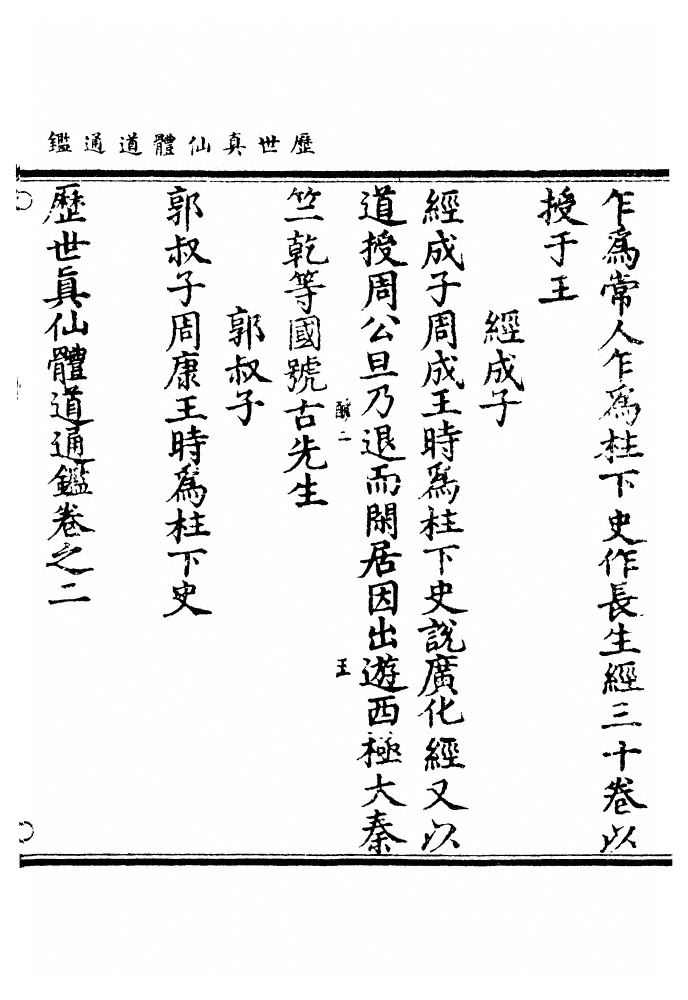 歷世真仙體道通鑑
乍爲常人乍爲柱下史作長生經三十卷以
授于王
經成子
經成子周成王時爲柱下史說廣化經又以
道授周公旦乃退而閑居因出遊西極大秦
二
王
竺乾等國號古先生
郭叔子
郭叔子周康王時爲柱下史
歷世眞仙體道通鑑卷之二